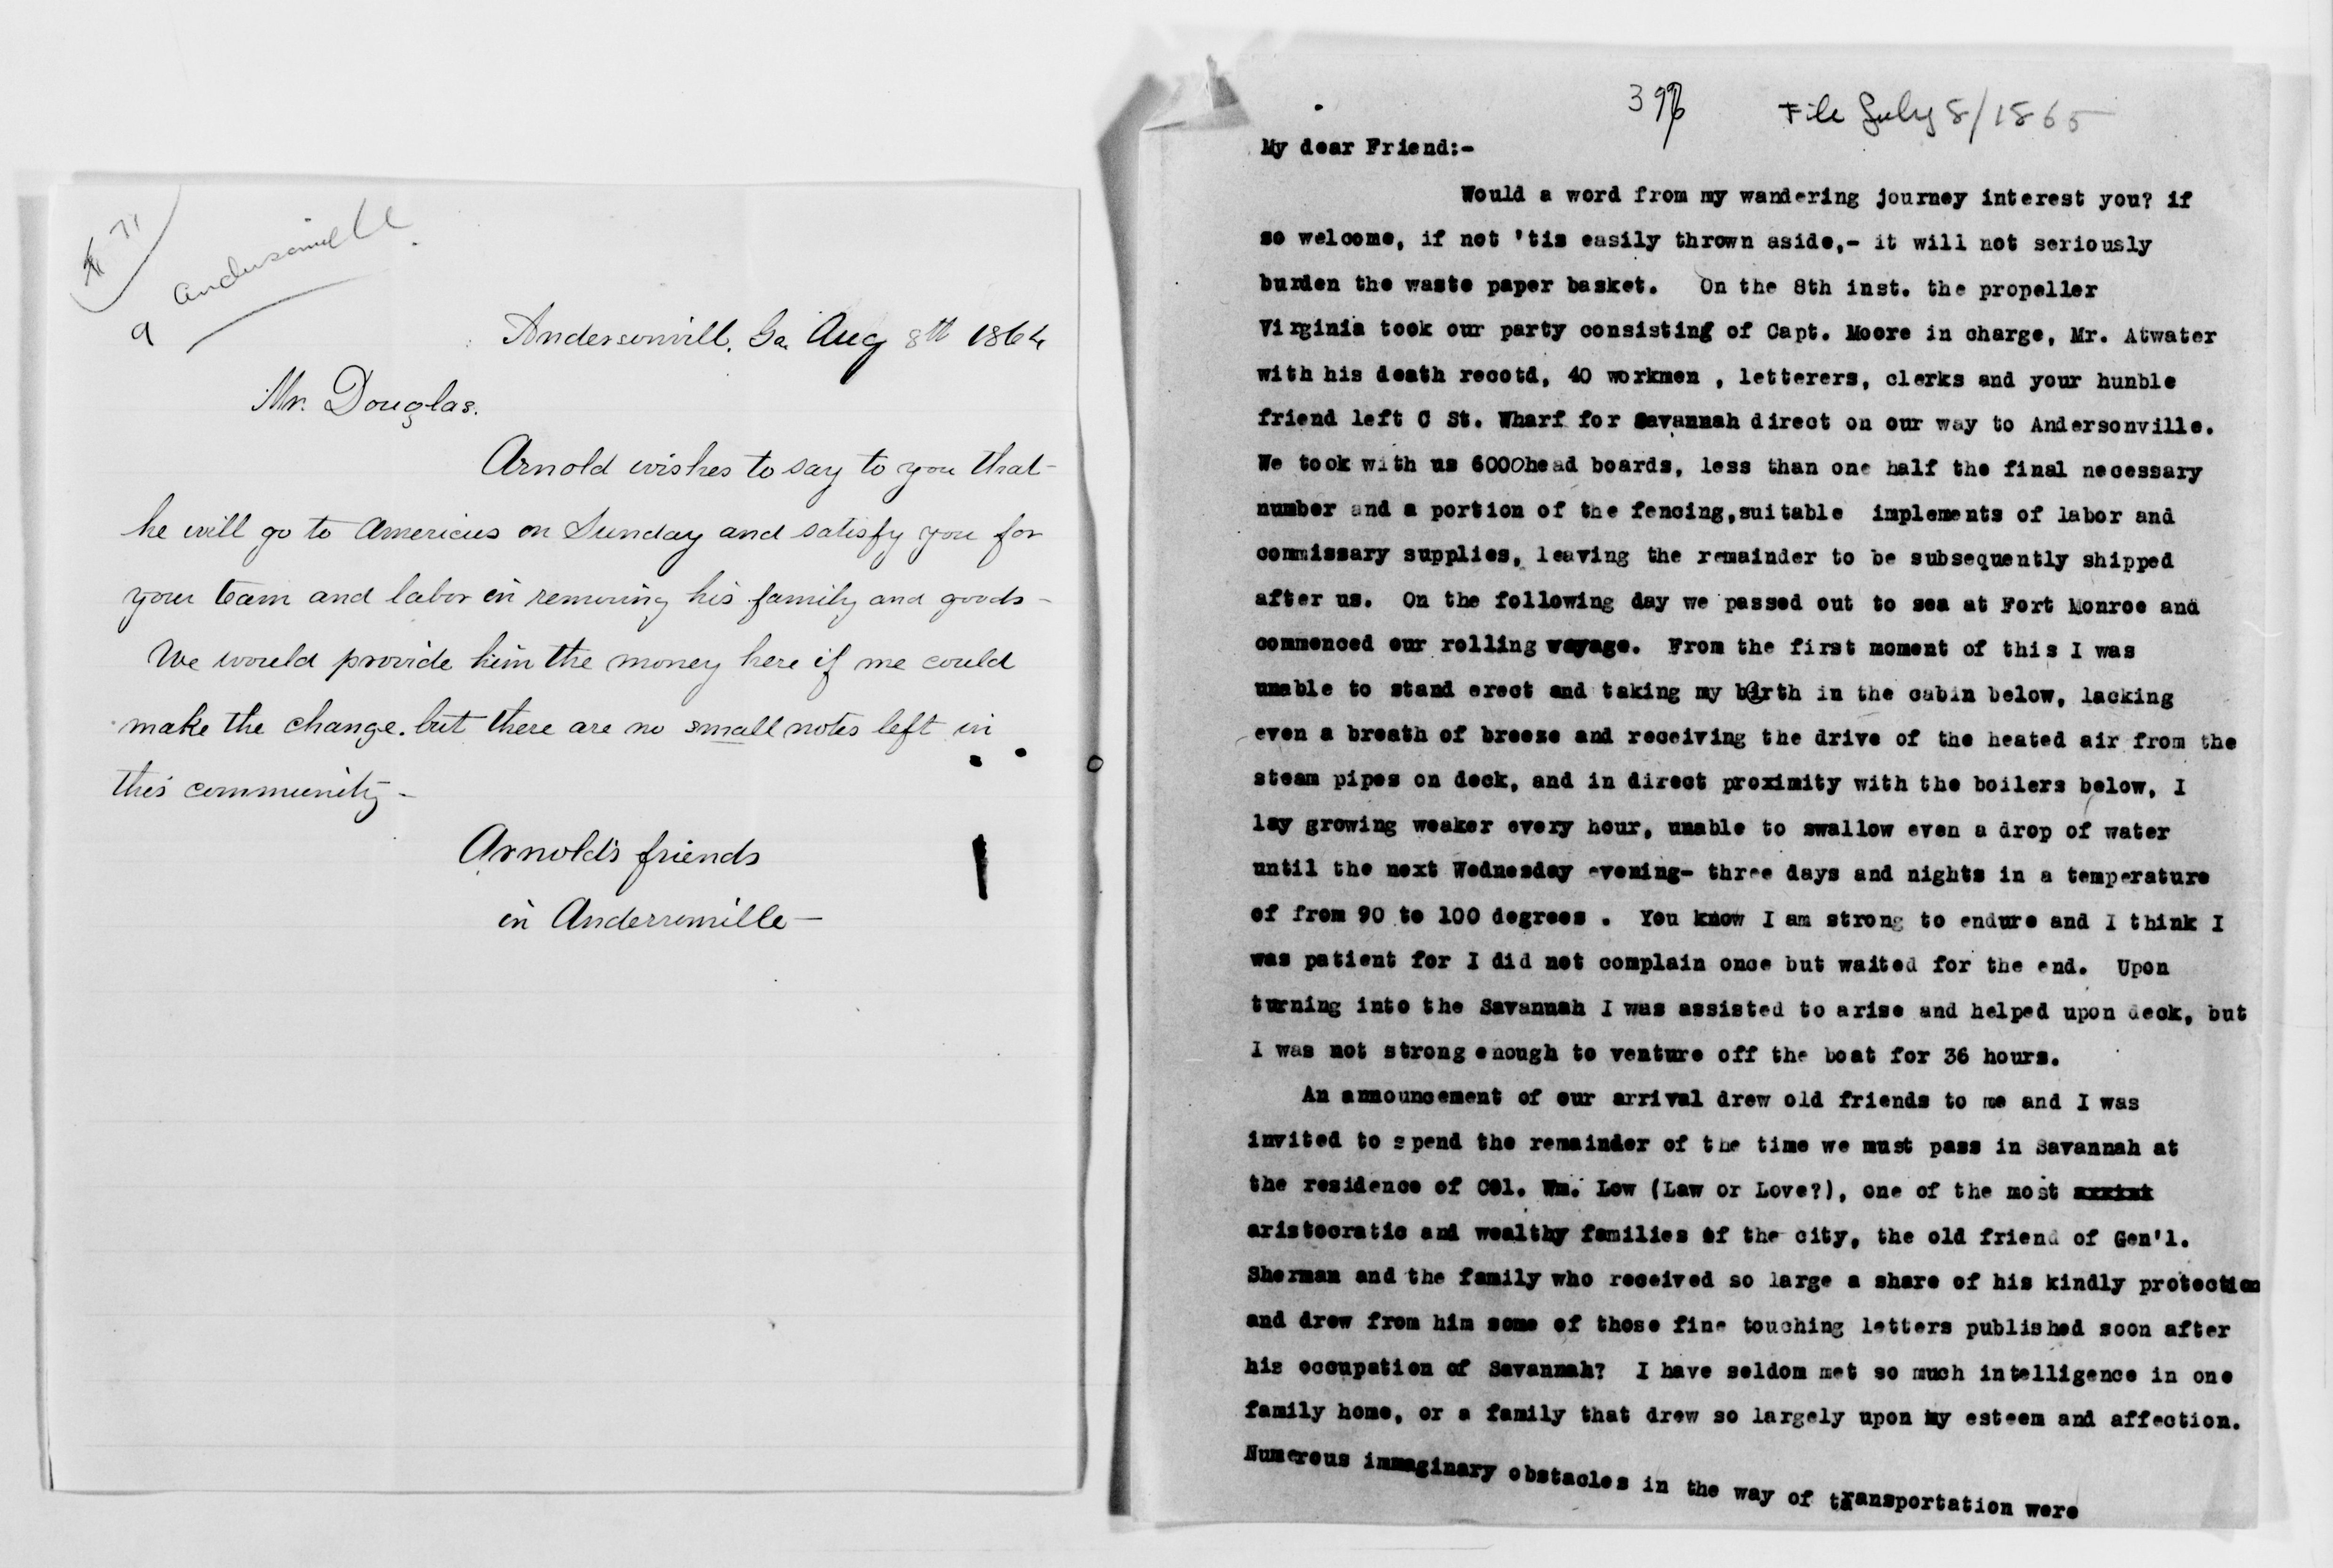 Andersonville
Andersonvill, Ga. Aug 8th 1864
Mr. Douglas.
Arnold wishes to say to you that
he will go to Americus on Sunday and satisfy you for
your team and labor in removing his family and goods -
We would provide him the money here if we could
make the change. but there are no small notes left in
this community -
Arnold's friends
in Andersonville -
File July 8/1865
My dear Friend:-
Would a word from my wandering journey interest you? if
so welcome, if not 'tis easily thrown aside,- it will not seriously
burden the waste paper basket. On the 8th inst. the propeller
Virginia took our party consisting of Capt. Moore in charge, Mr. Atwater
with his death recotd, 40 workmen , letterers, clerks and your hunble
friend left C St. Wharf for Savannah direct on our way to Andersonville.
We took with us 6000head boards, less than one half the final necessary
number and a portion of the fencing,suitable implements of labor and
commissary supplies, leaving the remainder to be subsequently shipped
after us. On the following day we passed out to sea at Fort Monroe and
commenced our rolling voyage. From the first moment of this I was
unable to stand erect and taking my berth in the cabin below, lacking
even a breath of breeze and receiving the drive of the heated air from the
steam pipes on deck, and in direct proximity with the boilers below, I
lay growing weaker every hour, unable to swallow even a drop of water
until the next Wednesday evening- three days and nights in a temperature
of from 90 to 100 degrees . You know I am strong to endure and I think I
was patient for I did not complain once but waited for the end. Upon
turning into the Savannah I was assisted to arise and helped upon deck, but
I was not strong enough to venture off the boat for 36 hours.
An announcement of our arrival drew old friends to me and I was
invited to spend the remainder of the time we must pass in Savannah at
the residence of Col. Wm. Low (Law or Love?), one of the most
aristocratic and wealthy families of the city, the old friend of Gen'l.
Sherman and the family who received so large a share of his kindly protection
and drew from him some of those fine touching letters published soon after
his occupation of Savannah? I have seldom met so much intelligence in one
family home, or a family that drew so largely upon my esteem and affection.
Numerous immaginary obstacles in the way of transportation were